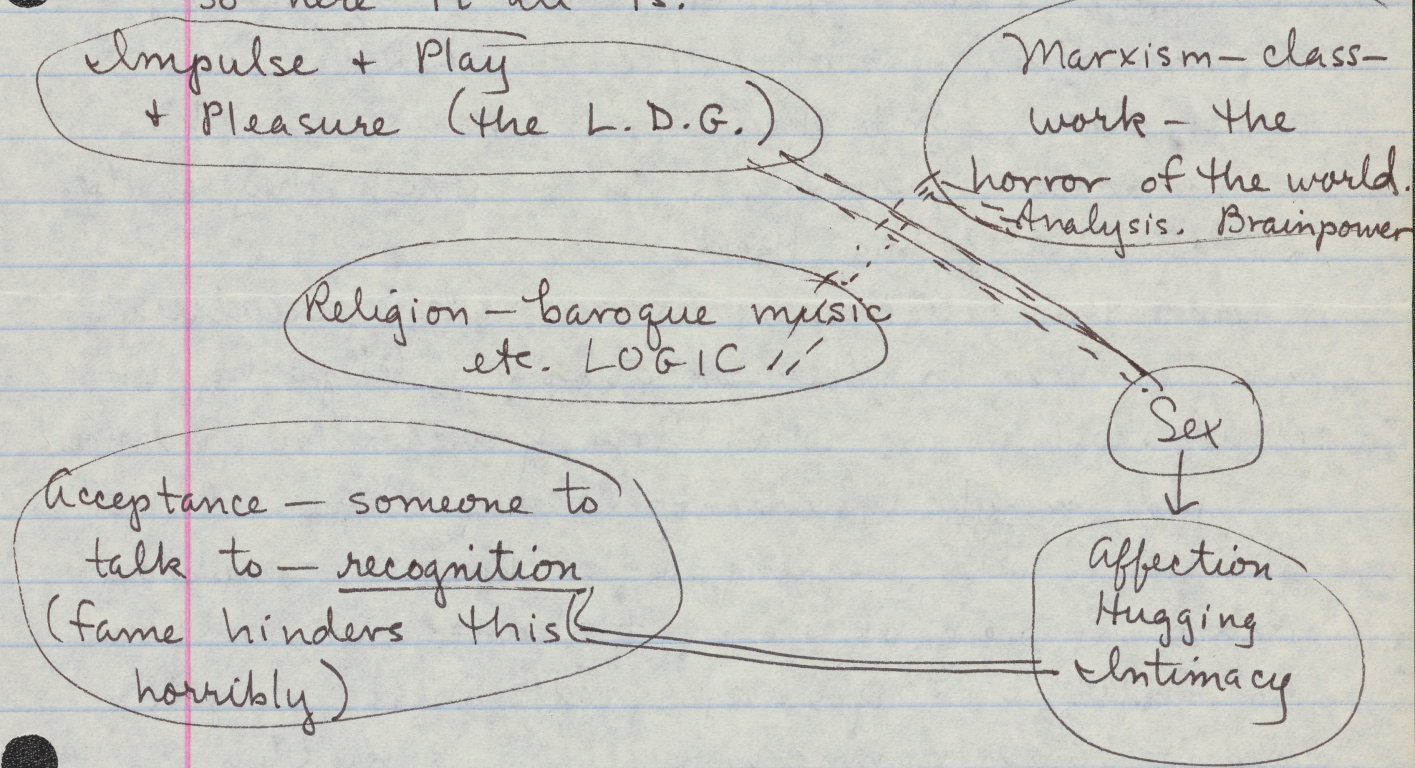 so here it all is.
Impulse + Play
+ Pleasure (the L.D.G.)
Marxism – class –
work – the
horror of the world.
Analysis. Brainpower
Religion – baroque music
etc. LOGIC
Sex
Acceptance – someone to
talk to – recognition
(fame hinders this
horribly)
Affection
Hugging
Intimacy